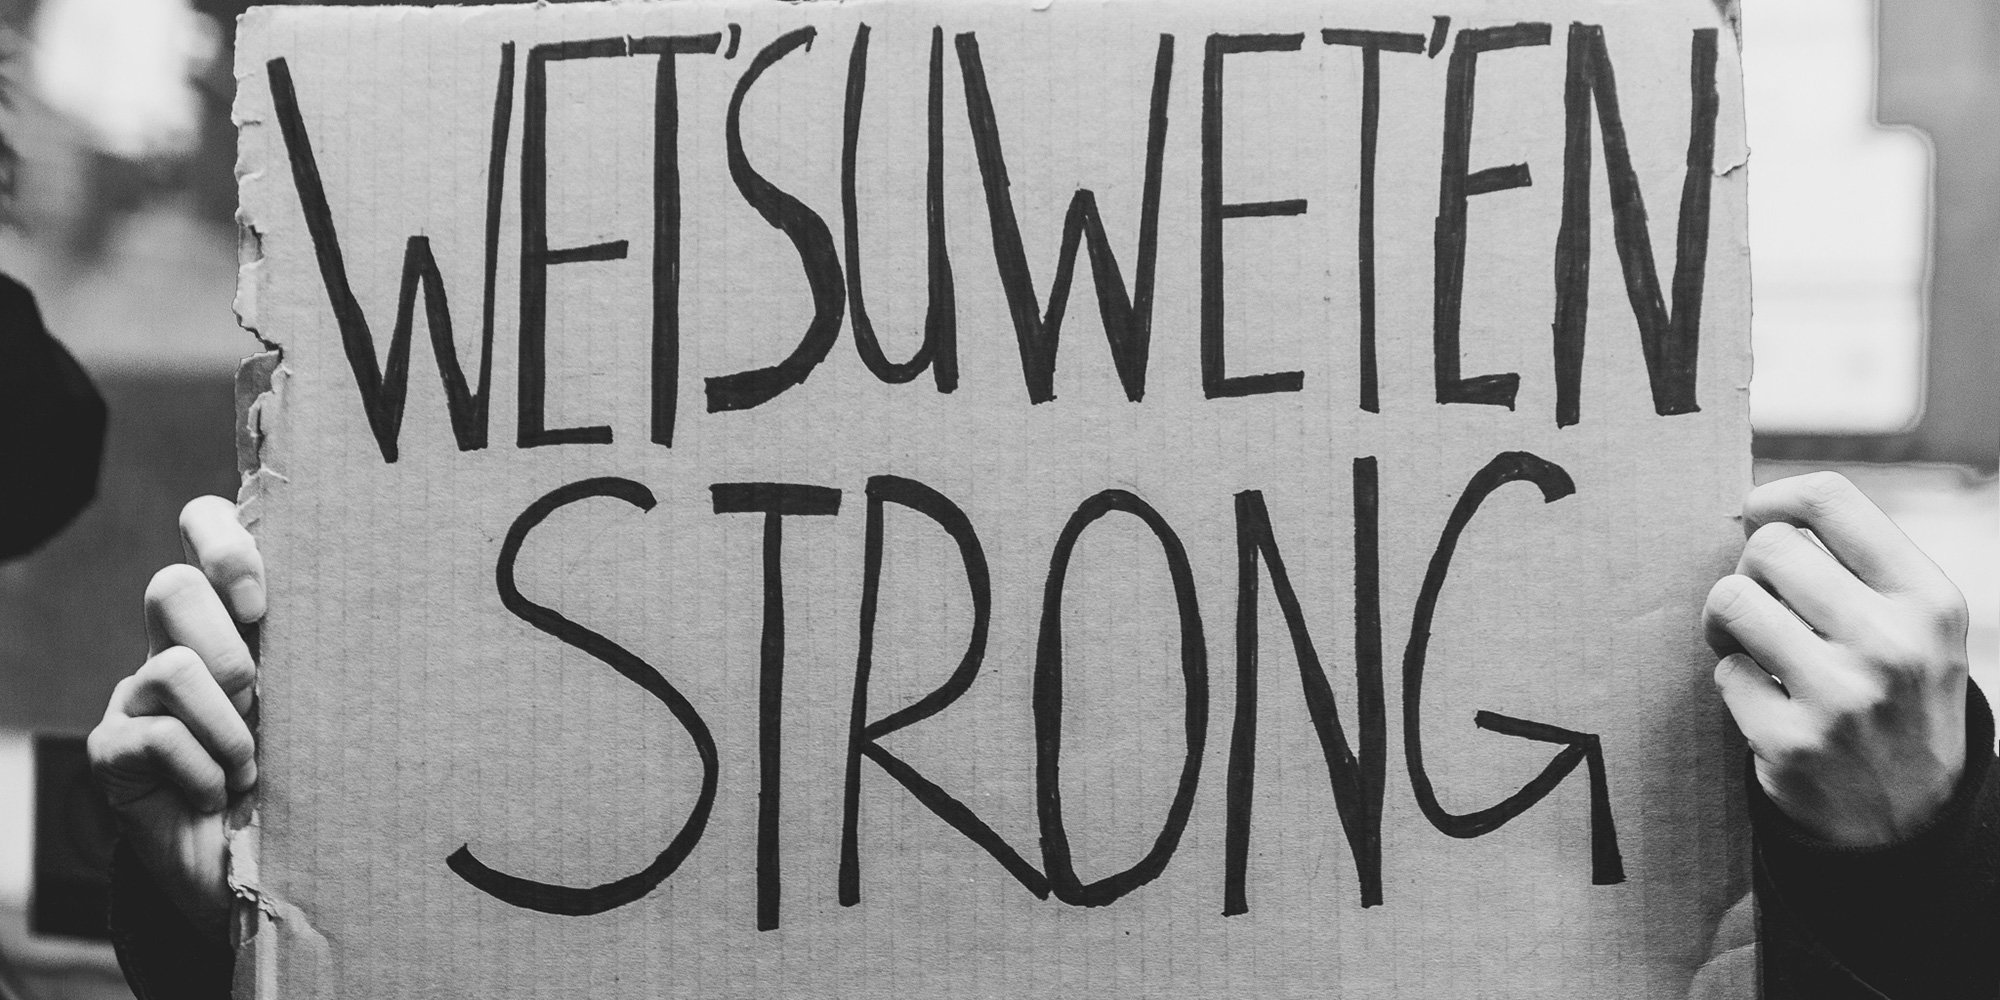 WET'SUWET'EN
STRONG